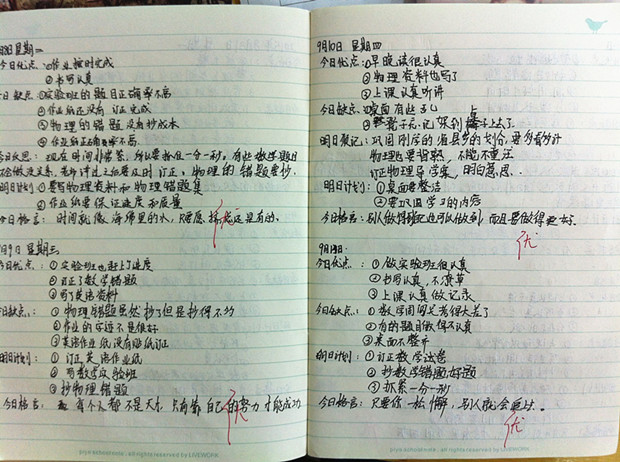 月8日 星期二
今日优点：①作业按时完成
②书写认真
今日缺点：①实验班的题目正确率不高
②作业纸还没有订正完成
③物理的错题没有抄成本
④作业纸正确率不高
今日反思：现在时间非常紧，所以要抓住一分一秒。有些数学题目
不会做没关系，老师讲过之后要及时订正，物理的错题要抄
明日计划：①要写物理资料和物理错题集
②作业纸要保证速度和质量
今日格言：时间就像海绵里的水，只要愿挤总还是有的。
优
9月9日 星期三
今日优点：①实验班也赶上了速度
②订正了数学错题
③写了英语资料
今日缺点：①物理错题虽然抄了但是抄得不多
②作业的字迹不是很好
③英语作业纸没有及时订正
明日计划：①订正英语作业纸
②写数学实验班
③抄物理错题
今日格言：每个人都不是天才，只有靠自己的努力才能成功
优
9月10日 星期四
今日优点：①早晚读很认真
②物理资料也写了
③上课认真听讲
今日缺点：①桌面有些乱
②凳子忘记保到椅子上去了
明日谨记：巩固刚学的省县乡的划分，要多看多计
物理题要背熟，不能不重注
订正物理导学案，明白意思.
明日计划：①桌面要整洁
②要巩固学习的内容
今日格言：别人做得到我也可以做到，而且要做得更好.
优
9月13日
今日优点：①做实验班很认真
②书写认真，不潦草
③上课认真做记录
今日缺点：①数学周周考得很差了
②有的题目做得不认真
③桌面不整齐
明日计划：①订正数学试卷
②抄数学错题好题
③抓紧一分一秒
今日格言：只要你一松懈，别人就会通过.
优